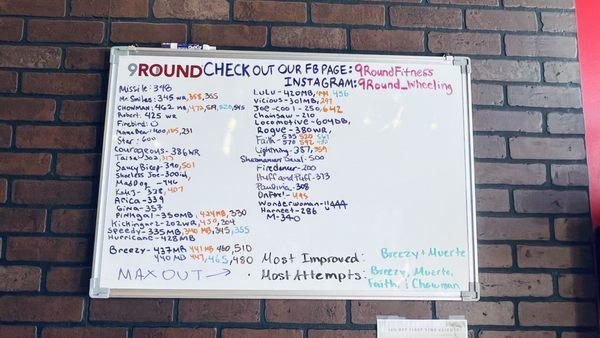 9ROUND CHECK OUT OUR FB PAGE: 9RoundFitness
INSTAGRAM: 9Round_Wheeling
Missile: 348
Mr Smiles: 345 WR, 358, 365
Chowman: 462 MB, 472, 519, 520, 545
Robert: 425 WR
Firebird: 0
Mama Bear: 400, 185, 231
Star: 600
Courageous: 386 WR
Taisa: 302, 317
Saucy Bicep: 390, 501
Shoeless Joe: 300
Mad Dog - 446
378, 407
Arica - 339
Gina - 357
PinkGal - 350 MB, 424 MB, 330
Kickingurz - 202 WR, 450, 304
Speedy - 335 MB, 340 MB, 345, 355
Hurricane - 428 MB
Breezy - 437 MB 441 MB 480, 510
440 MB 447, 465, 480
MAX OUT →
LuLu - 420 MB, 436
Vicious - 301 MB, 297
Joe-cool - 250, 642
Chainsaw - 210
Locomotive - 604 DB,
Rogue - 380 WR,
535 520
Faith - 570 592
Lightning - 387, 359
500
Firedancer - 200
Huff and Puff - 373
Paulina - 308
OnFox! - 495
Wonderwoman - 444
Harneet - 286
M - 340
Most Improved: Breezy + Muerte
• Most Attempts: Breezy, Muerte,
Faith, : Chowman